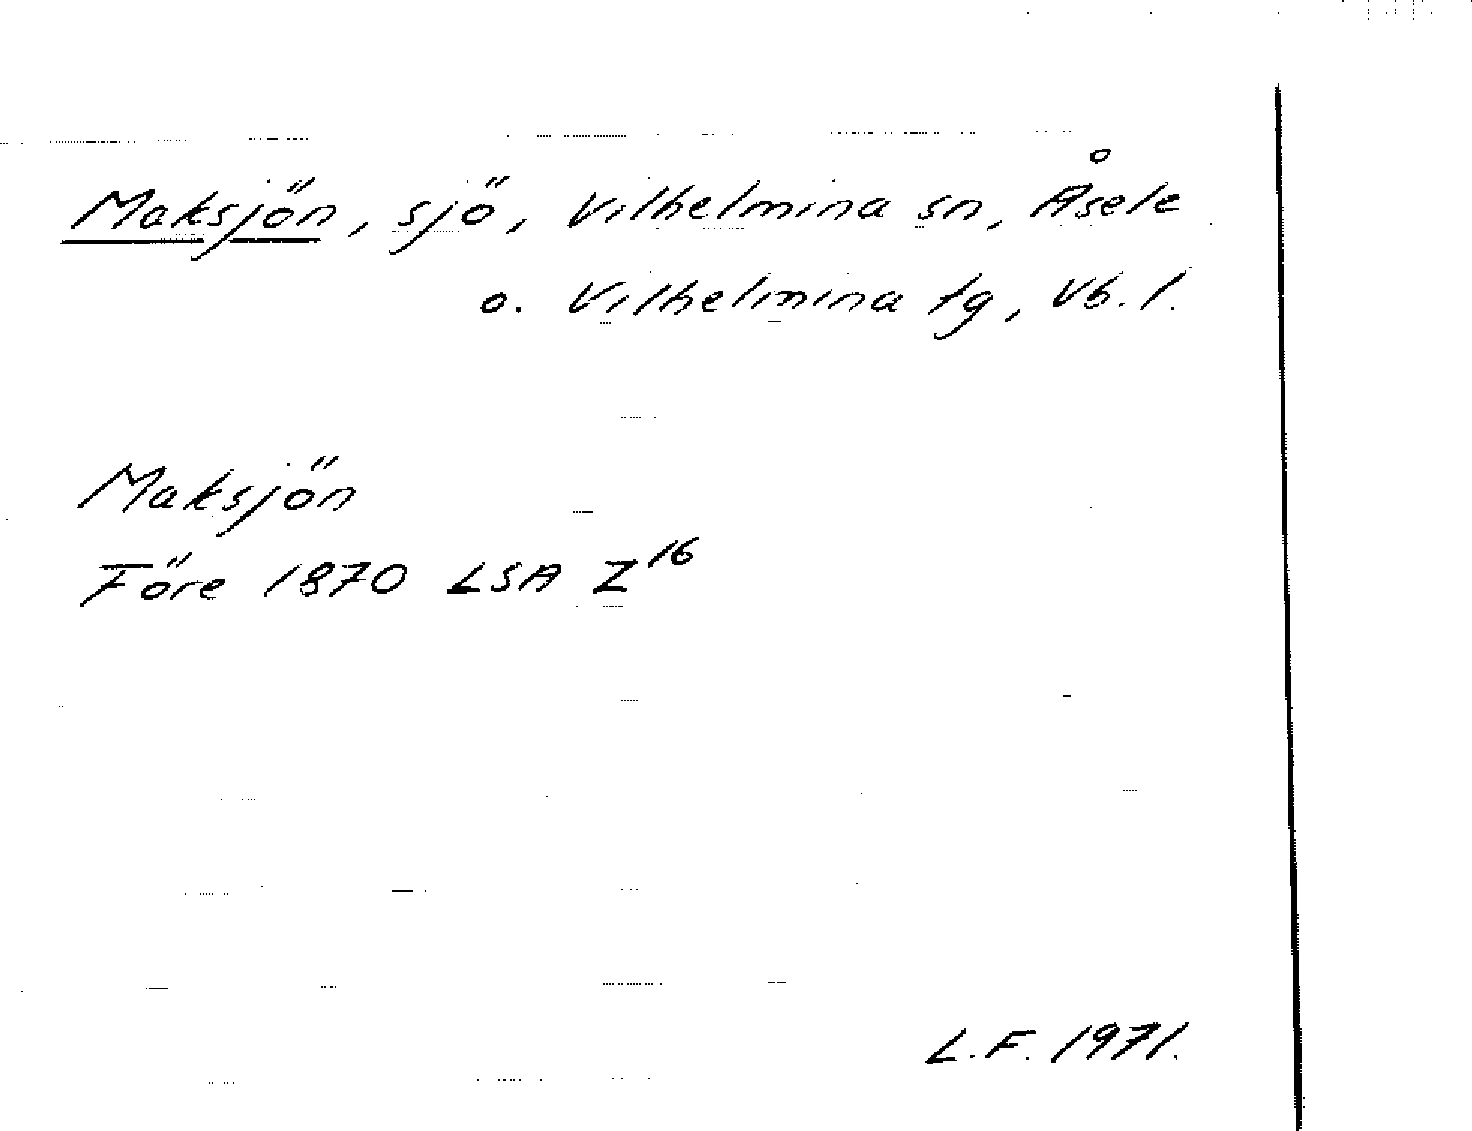 Maksjön, sjö, Vilhelmina sn, Åsele
o. Vilhelmina tg, Vb. l.
Maksjön
Före 1870 LSA Z16
L.F. 1971.